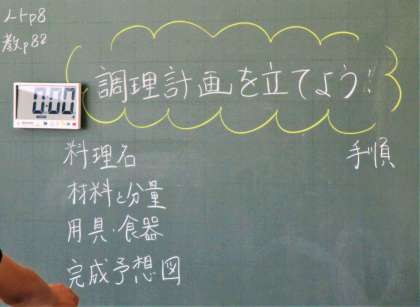 ノートp8
教p82
0:00
調理計画を立てよう!
料理名
手順
材料と分量
用具・食器
完成予想図